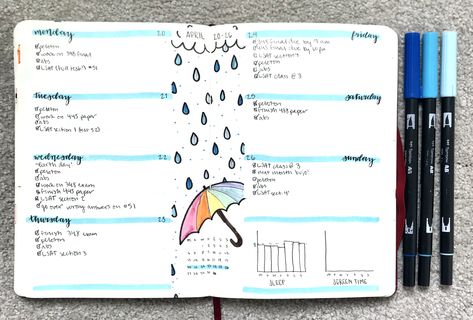 monday 20
peloton
work on 348 final
abs
LSAT (full test?) #51
tuesday 21
peloton
work on 445 paper
abs
LSAT section 1 (test 52)
wednesday 22
"earth day"
peloton
abs
work on 348 exam
finish 445 paper
LSAT section 2
go over wrong answers on #51
thursday 23
finish 348 exam
peloton
abs
LSAT section 3
APRIL 20-26
M T W T F S S
24 friday
LSAT section 4
peloton
abs
LSAT class #3
25 saturday
peloton
finish 445 paper
abs
26 sunday
LSAT class #3
peloton
abs
LSAT sect. 4
M T W T F S S
SLEEP
M T W T F S S
SCREEN TIME
AB
AB
AB